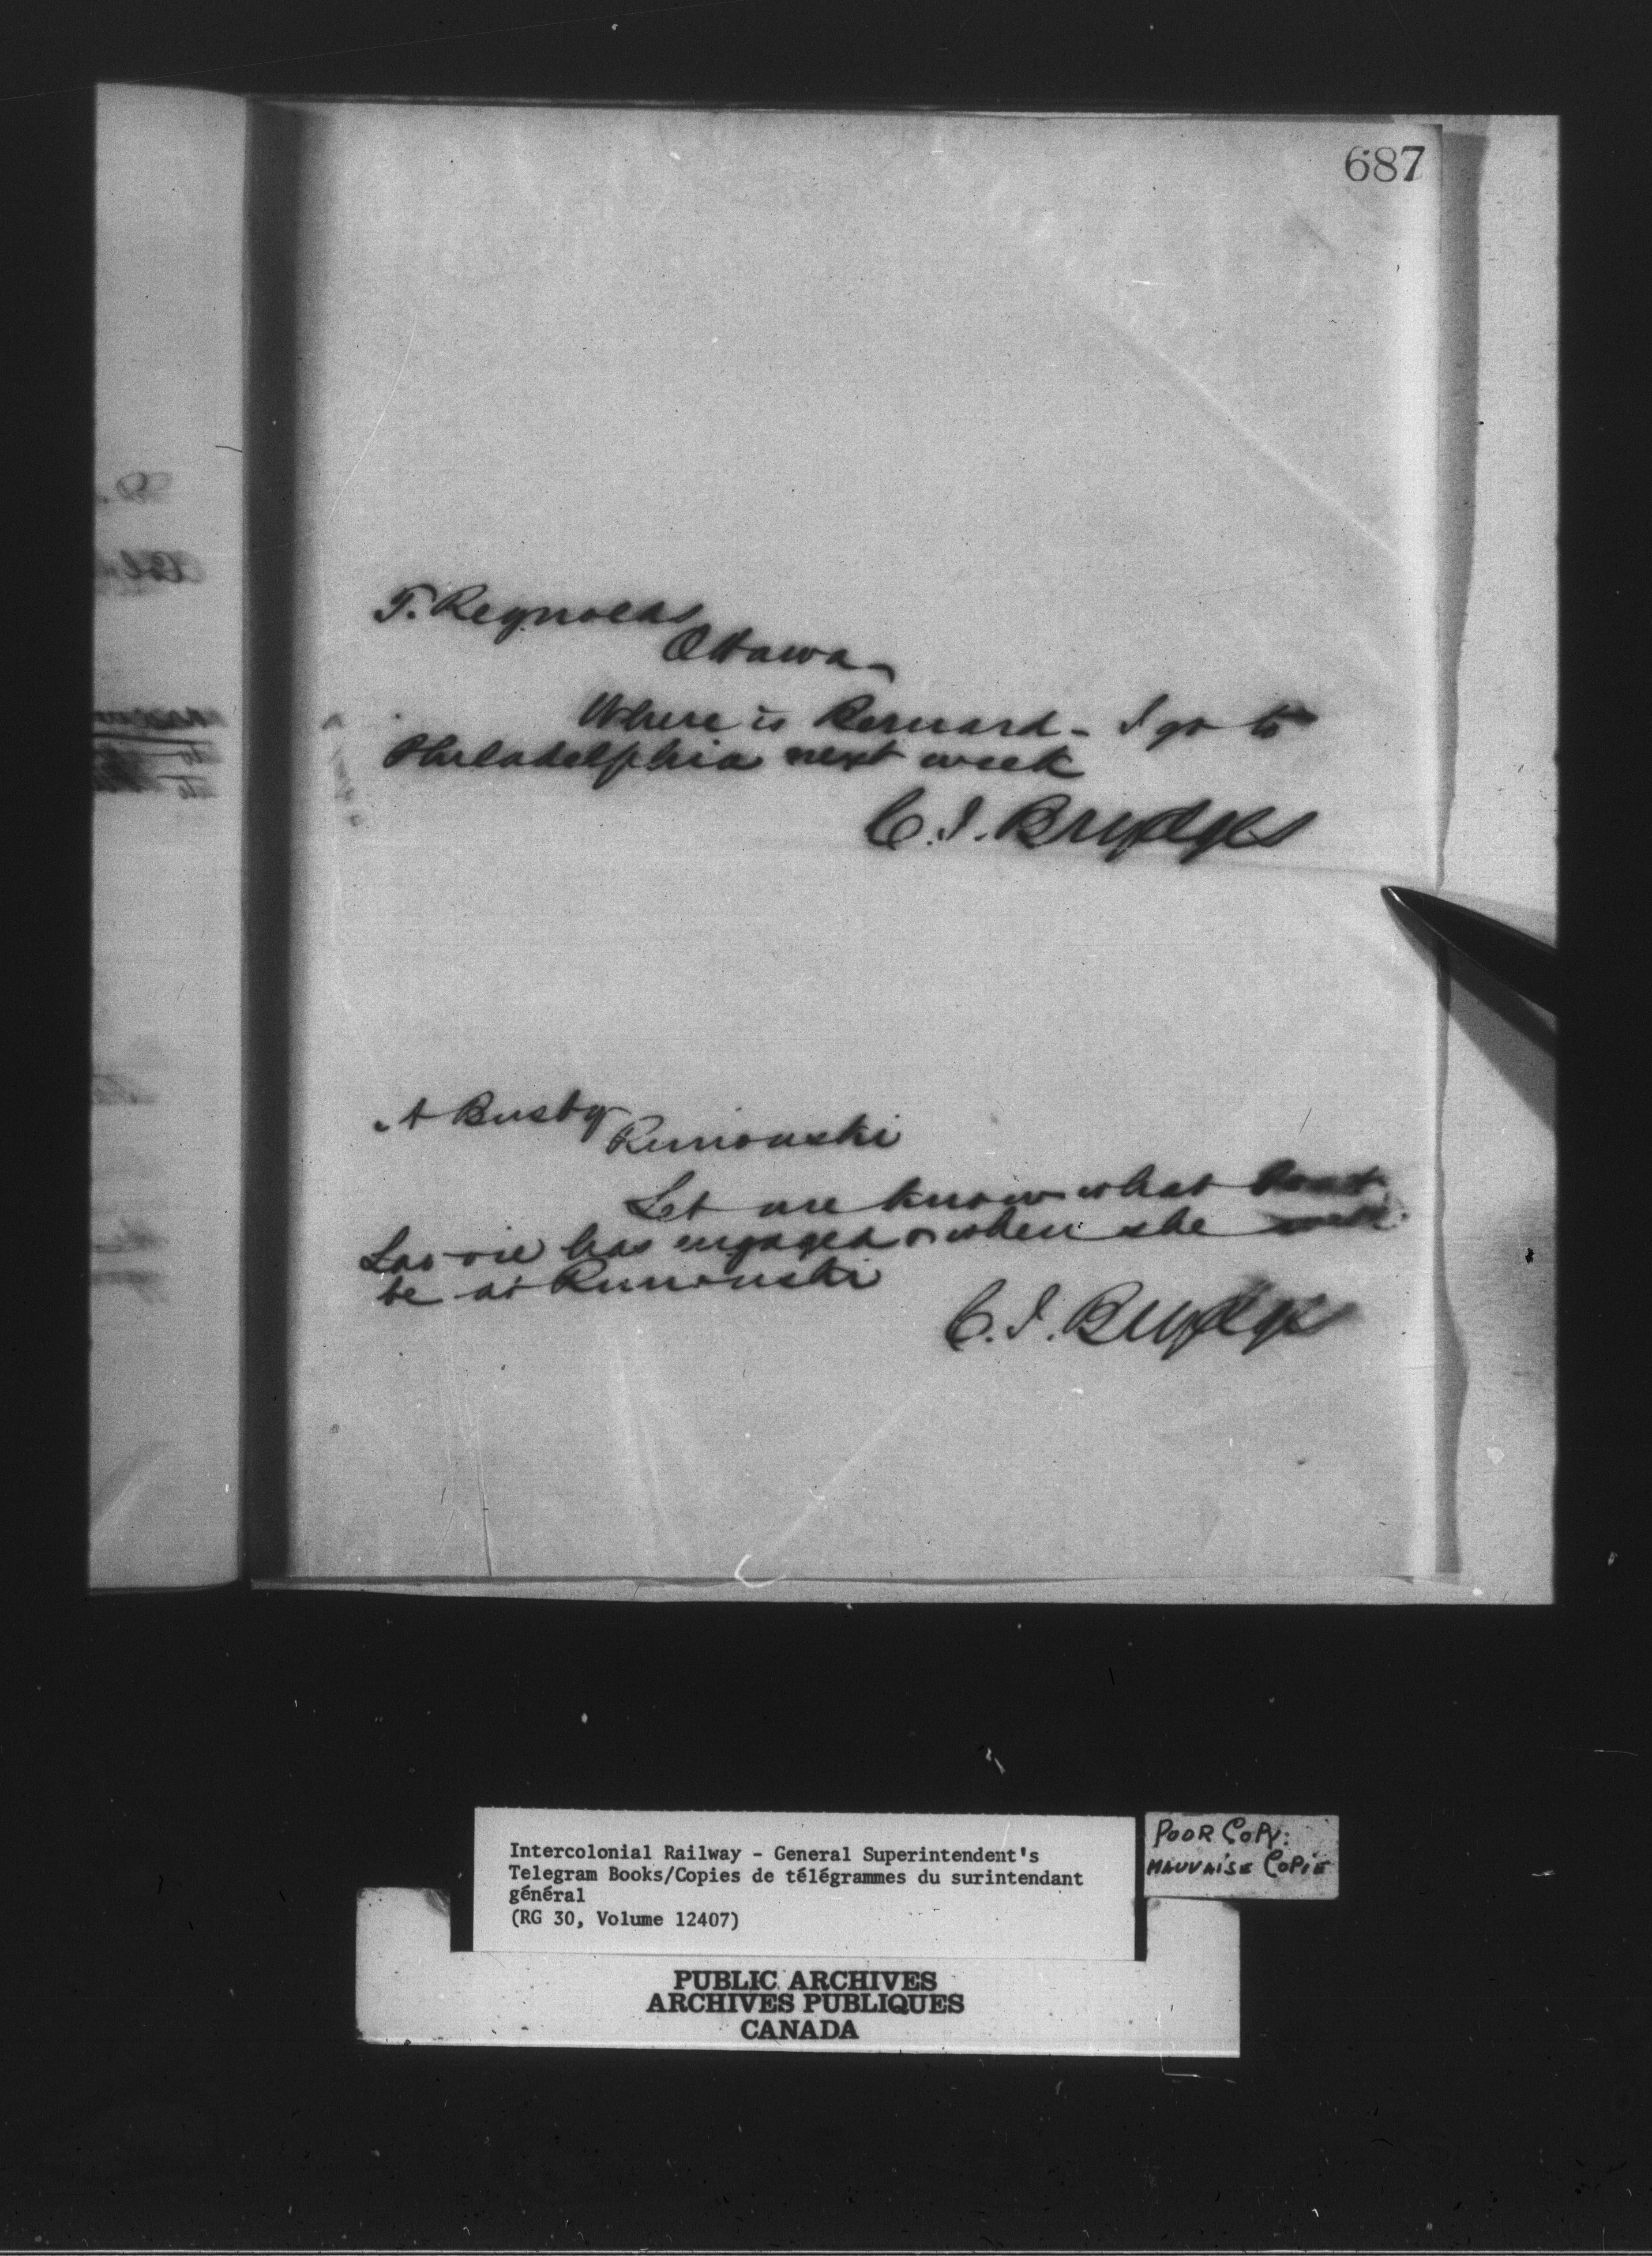 687
T. Reynolds
Ottawa
Where is Bernard - I go to
Philadelphia next week
C. J. Brydges
A Busby
Rimouski
Let me know what boat
Lavoie has engaged & when she will
be at Rimouski
C. J. Brydges
Intercolonial Railway - General Superintendent's
Telegram Books/Copies de télégrammes du surintendant
général
(RG 30, Volume 12407)
POOR COPY.
MAUVAISE COPIE
PUBLIC ARCHIVES
ARCHIVES PUBLIQUES
CANADA